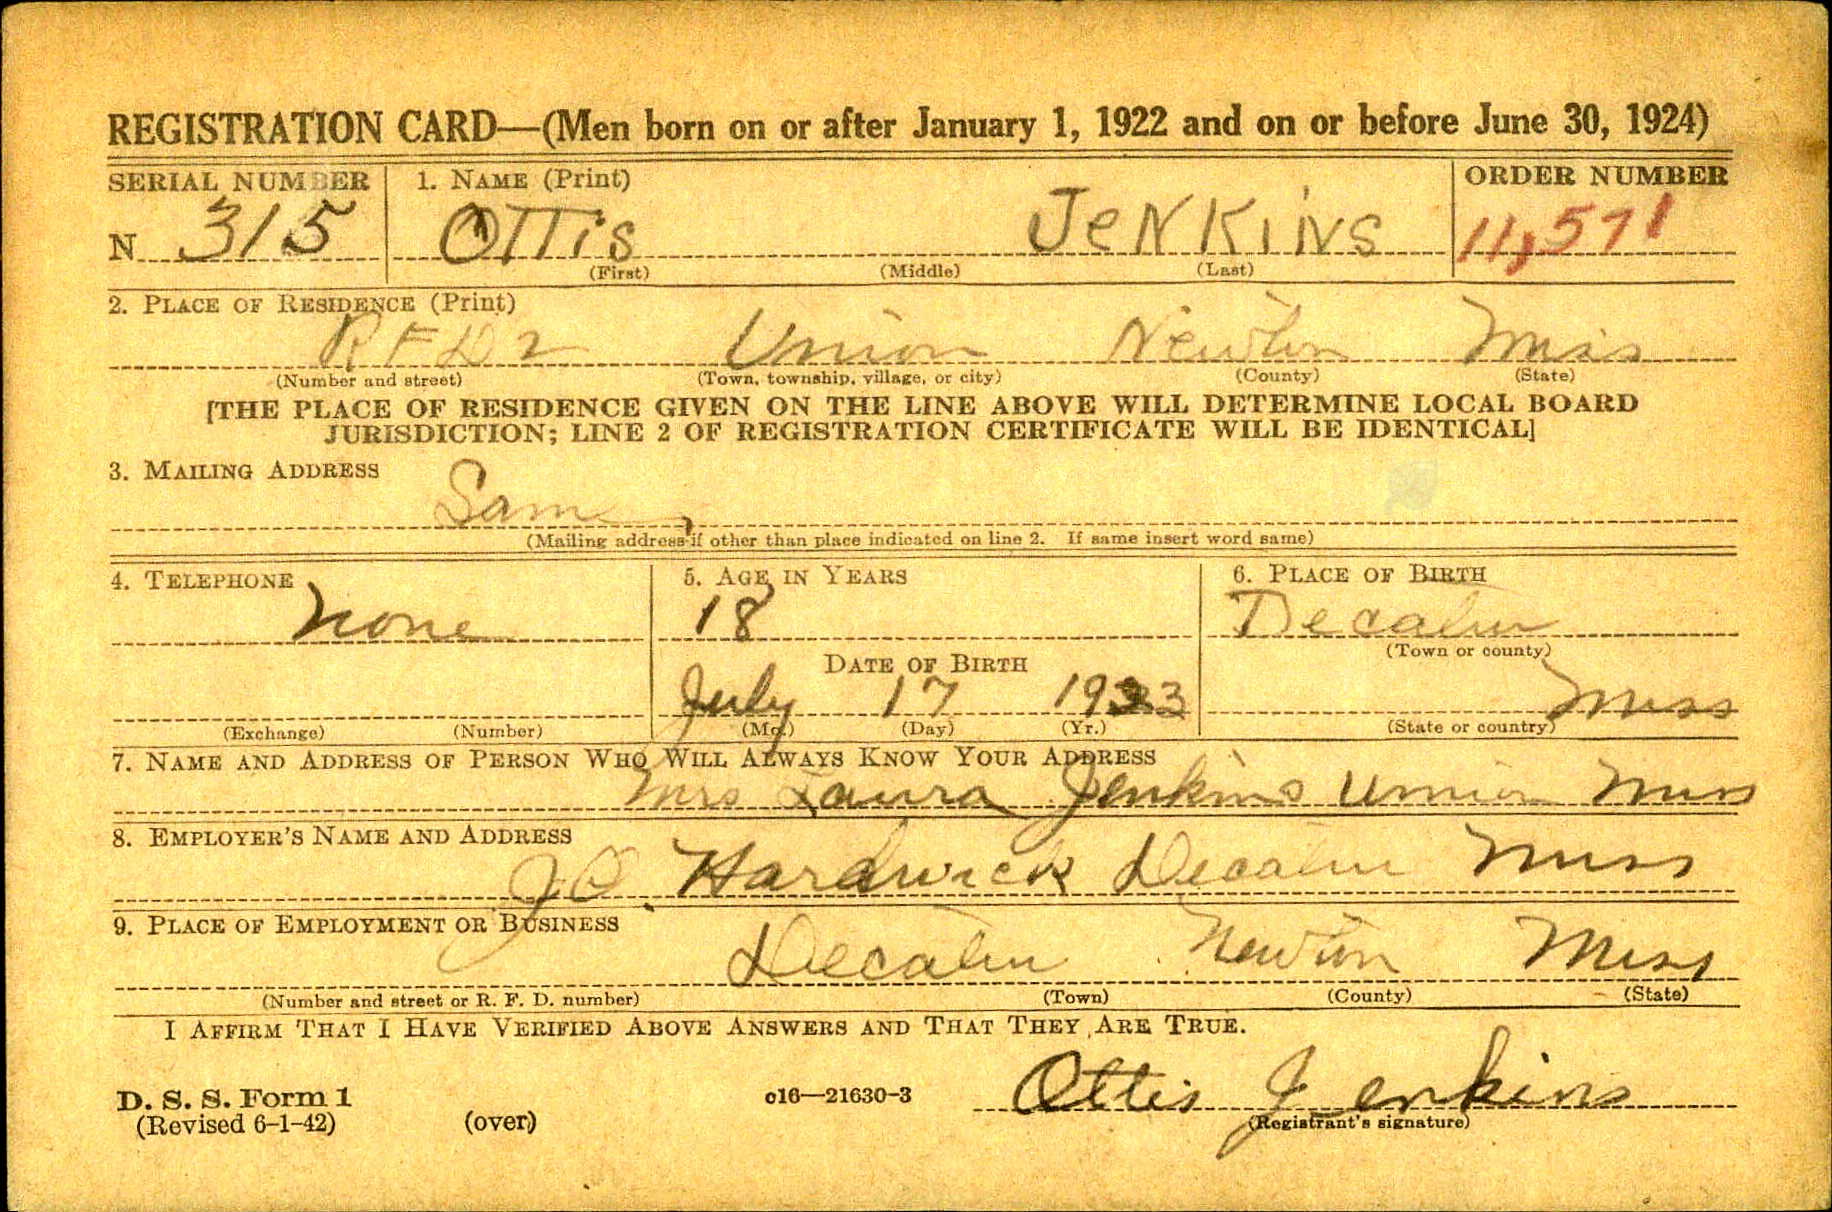 REGISTRATION CARD—(Men born on or after January 1, 1922 and on or before June 30, 1924)
SERIAL NUMBER 1. NAME (Print) ORDER NUMBER
N 315 OTTiS JeNKiNS 11,571
(First) (Middle) (Last)
2. PLACE OF RESIDENCE (Print)
RFD 2 Union Newton Miss
(Number and street) (Town, township, village, or city) (County) (State)
[THE PLACE OF RESIDENCE GIVEN ON THE LINE ABOVE WILL DETERMINE LOCAL BOARD
JURISDICTION; LINE 2 OF REGISTRATION CERTIFICATE WILL BE IDENTICAL]
3. MAILING ADDRESS
Same
(Mailing address if other than place indicated on line 2. If same insert word same)
4. TELEPHONE 5. AGE IN YEARS 6. PLACE OF BIRTH
None 18 Decatur
(Town or county)
DATE OF BIRTH
July 17 1923 Miss
(Exchange) (Number) (Mo.) (Day) (Yr.) (State or country)
7. NAME AND ADDRESS OF PERSON WHO WILL ALWAYS KNOW YOUR ADDRESS
Mrs Laura Jenkins Union Miss
8. EMPLOYER'S NAME AND ADDRESS
Hardwick Decatur Miss
9. PLACE OF EMPLOYMENT OR BUSINESS
Decatur Newton Miss
(Number and street or R. F. D. number) (Town) (County) (State)
I AFFIRM THAT I HAVE VERIFIED ABOVE ANSWERS AND THAT THEY ARE TRUE.
D. S. S. Form 1 c16—21630-3 Ottis Jenkins
(Revised 6-1-42) (over) (Registrant's signature)